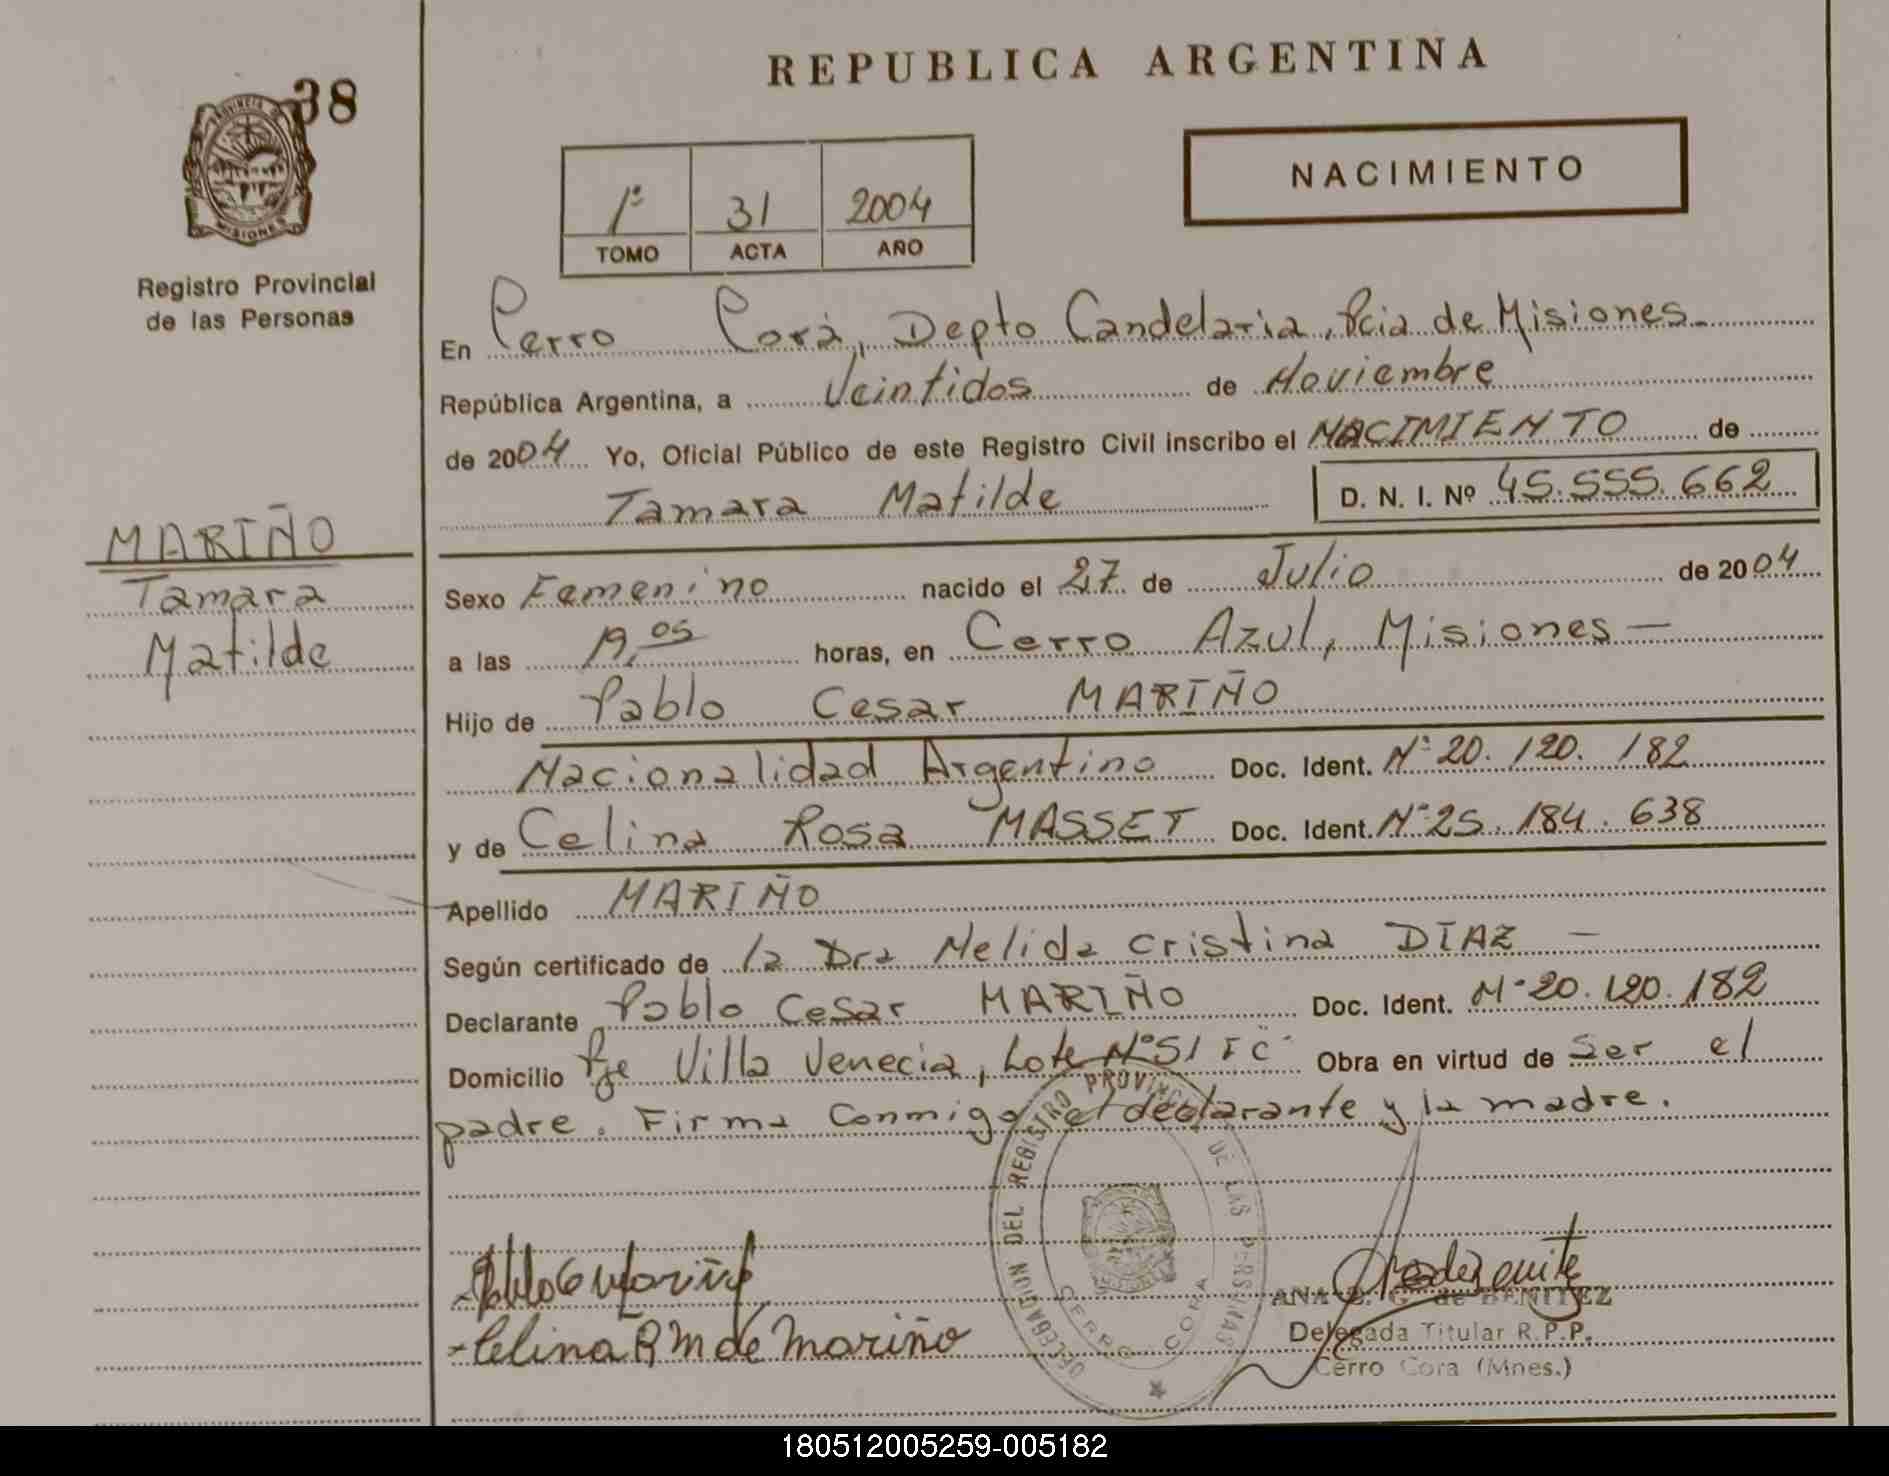 REPUBLICA ARGENTINA
38
PROVINCIA DE
MISIONES
Registro Provincial
de las Personas
1º 31 2004
TOMO ACTA AÑO
NACIMIENTO
En Cerro Corá, Depto Candelaria, Pcia de Misiones
República Argentina, a Veintidos de Noviembre
de 2004 Yo, Oficial Público de este Registro Civil inscribo el NACIMIENTO de
Tamara Matilde D. N. I. Nº 45.555.662
MARIÑO
Tamara
Matilde
Sexo Femenino nacido el 27 de Julio de 2004
a las 19,05 horas, en Cerro Azul, Misiones —
Hijo de Pablo Cesar MARIÑO
Nacionalidad Argentino Doc. Ident. Nº 20.120.182
y de Celina Rosa MASSET Doc. Ident. Nº 25.184.638
Apellido MARIÑO
Según certificado de la Dra Nelida Cristina DIAZ —
Declarante Pablo Cesar MARIÑO Doc. Ident. Nº 20.120.182
Domicilio Pje Villa Venecia, Lote Nº 51 Obra en virtud de Ser el
padre. Firma Conmigo el declarante y la madre.
DELEGACION DEL REGISTRO PROVINCIAL DE LAS PERSONAS
CERRO CORA
Pablo C Mariño
Celina R M de Mariño
ANA G. de BENITEZ
Delegada Titular R.P.P.
Cerro Cora (Mnes.)
180512005259-005182